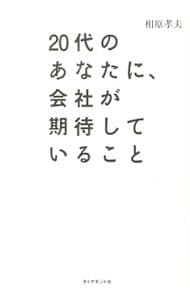 相原孝夫
20代の
あなたに、
会社が
期待して
いること
ダイヤモンド社